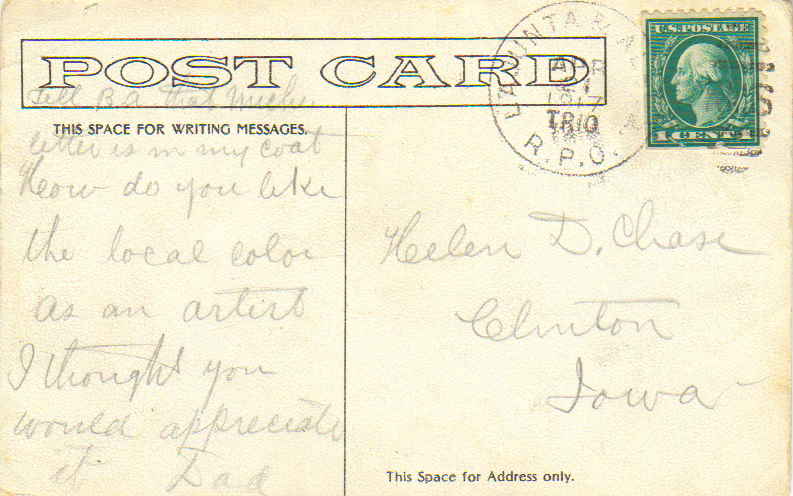 POST CARD
Tell B.A. that Mich.
THIS SPACE FOR WRITING MESSAGES.
letter is in my coat
How do you like
the local color
as an artist
I thought you
would appreciate
it Dad
APR
1917
TR10
R.P.O.
U.S. POSTAGE
1 CENT 1
Helen D. Chase
Clinton
Iowa
This Space for Address only.